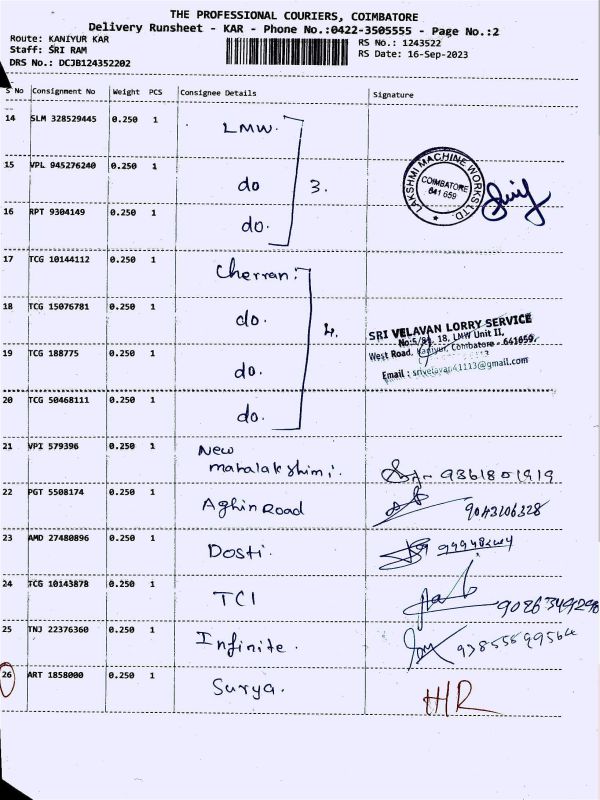 THE PROFESSIONAL COURIERS, COIMBATORE
Delivery Runsheet - KAR - Phone No.:0422-3505555 - Page No.:2
Route: KANIYUR KAR
RS No.: 1243522
Staff: SRI RAM
RS Date: 16-Sep-2023
DRS No.: DCJB124352202
S No Consignment No Weight PCS Consignee Details Signature
14 SLM 328529445 0.250 1 LMW.
15 VPL 945276240 0.250 1 do 3.
LAKSHMI MACHINE WORKS LTD.
COIMBATORE
641 659
16 RPT 9304149 0.250 1 do.
17 TCG 10144112 0.250 1 Cherran.
18 TCG 15076781 0.250 1 do. 4.
SRI VELAVAN LORRY SERVICE
18, LMW Unit II,
West Road, Kaniyur, Coimbatore - 641659.
Email : srivelavan41113@gmail.com
19 TCG 188775 0.250 1 do.
20 TCG 50468111 0.250 1 do.
21 VPI 579396 0.250 1 New
mahalakshimi. 9361801919
22 PGT 5508174 0.250 1 Aghin Road 9043106328
23 AMD 27480896 0.250 1 Dosti.
24 TCG 10143878 0.250 1 TCI
25 TNJ 22376360 0.250 1 Infinite.
26 ART 1858000 0.250 1 Surya. H/R